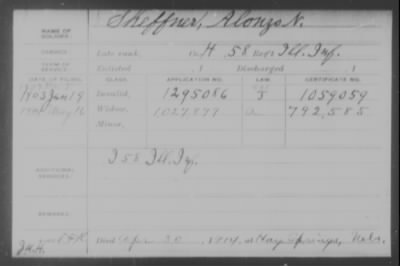 NAME OF SOLDIER: Sheffner, Alonzo N.
SERVICE: Late rank, Co. H, 58 Reg't Ill. Inf.
TERM OF SERVICE: Enlisted , 1 Discharged , 1
DATE OF FILING. CLASS. APPLICATION NO. LAW. CERTIFICATE NO.
1903 Jan 19 Invalid, 1295086 1059059
May 16 Widow, 1027,899 792,585
Minor,
ADDITIONAL SERVICES: I 58 Ill. Inf.
REMARKS:
Died Apr 30, 1914, at Hay Springs, Nebr.